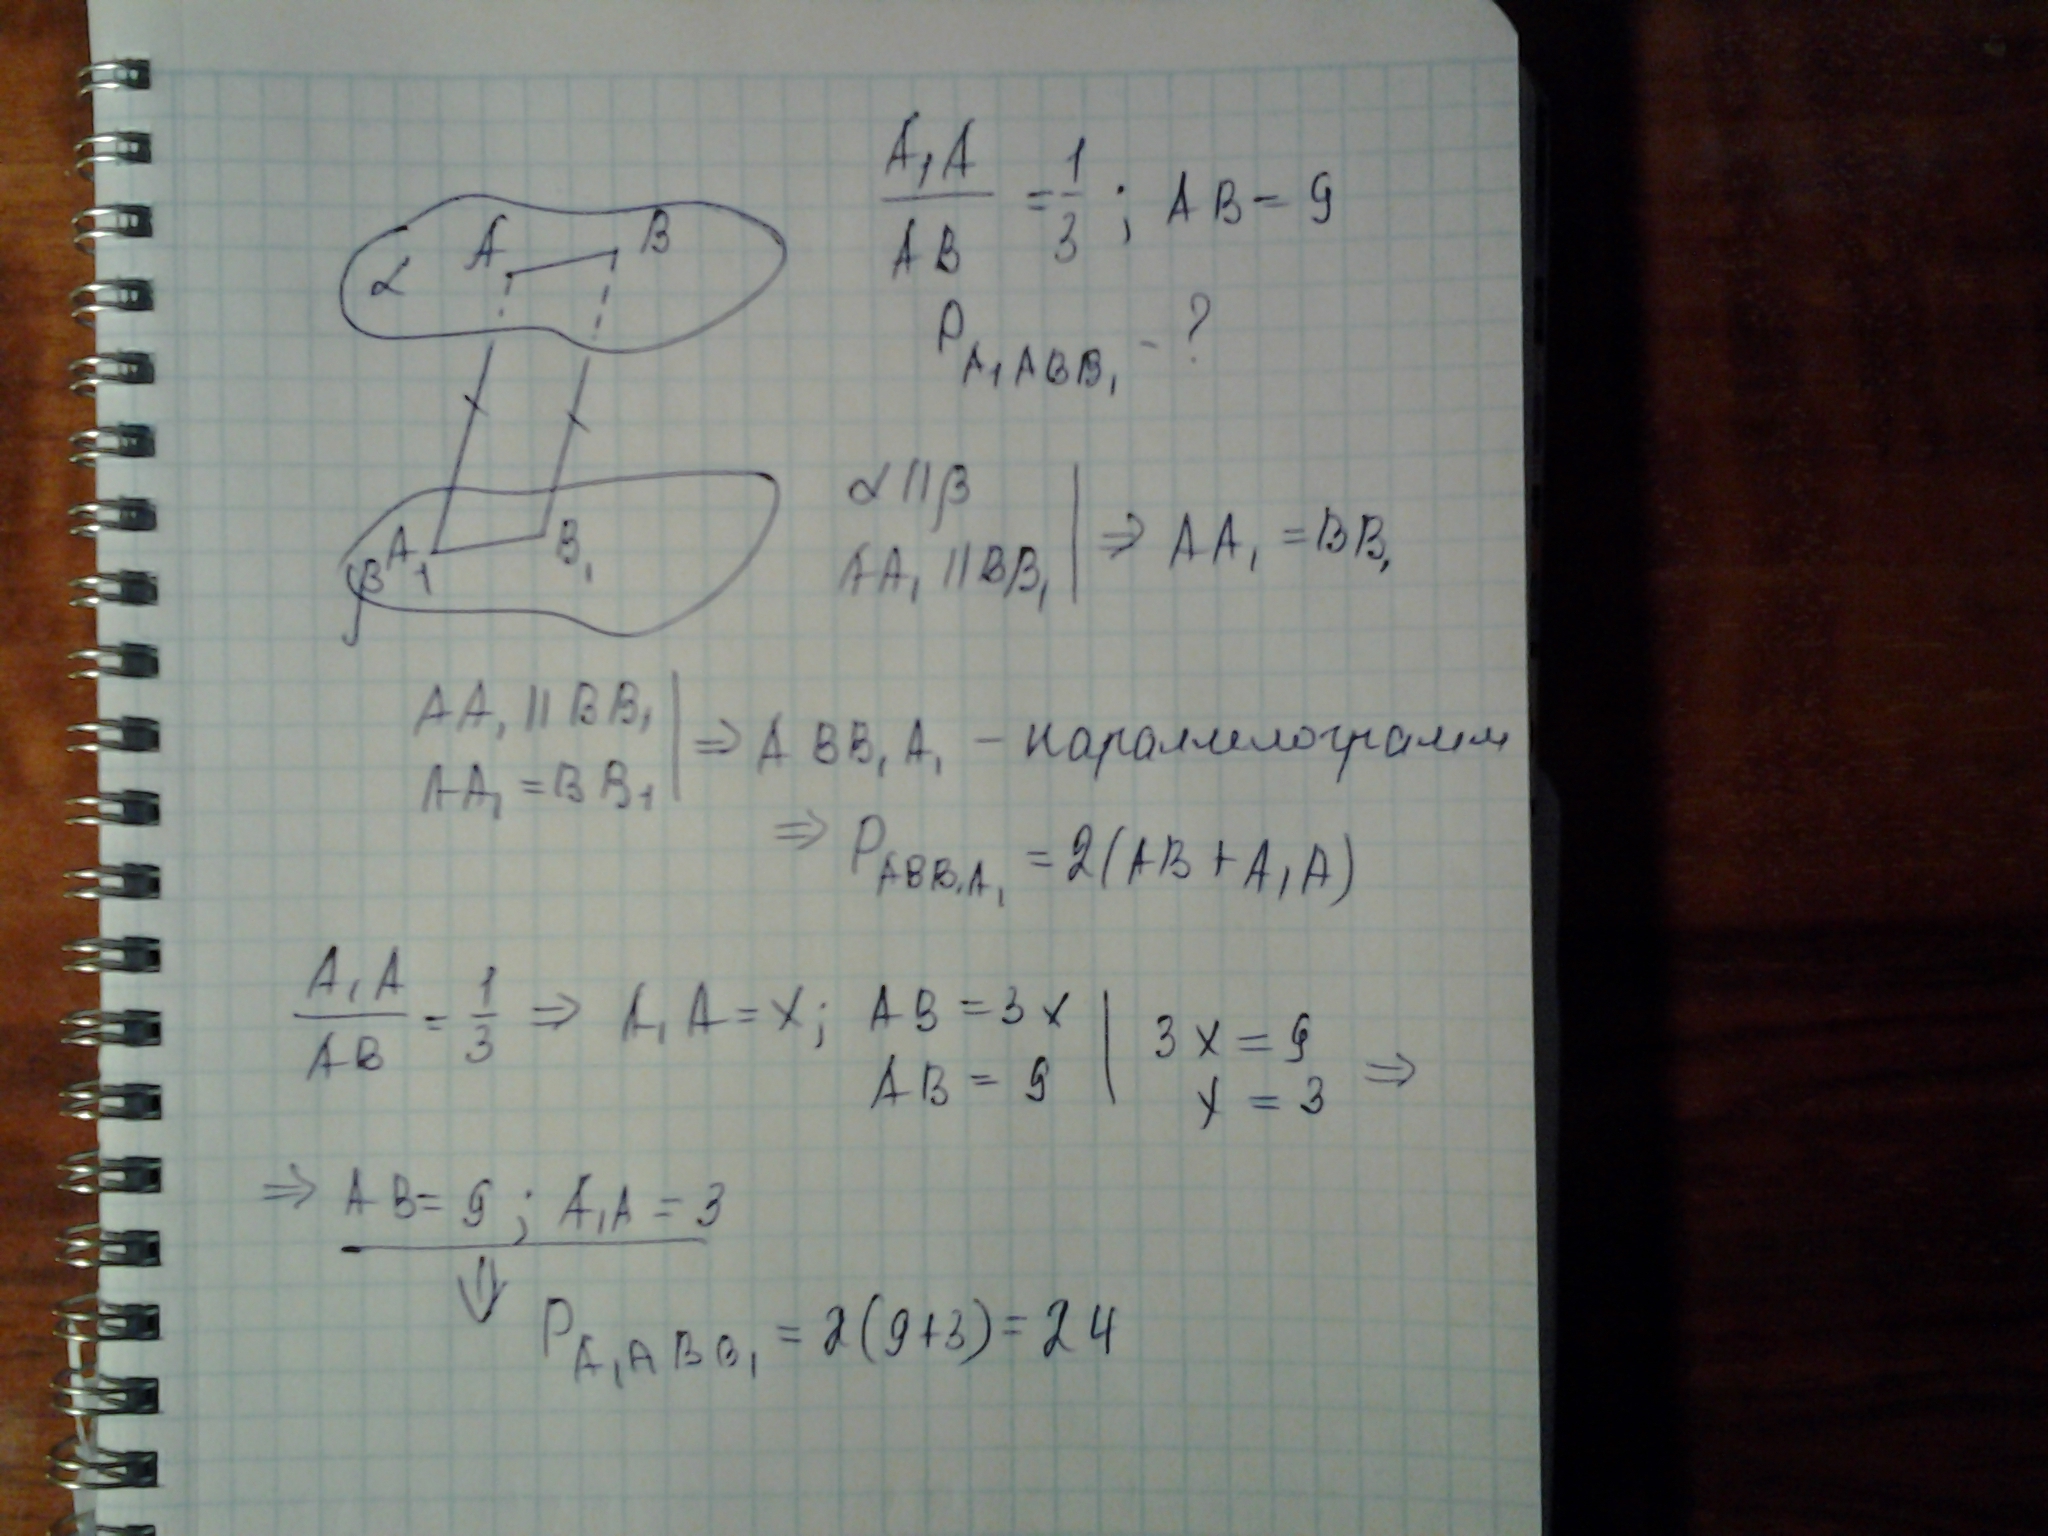 A₁A / AB = 1/3 ; AB = 9
P A₁ABB₁ - ?
α A B
β A₁ B₁
α || β
AA₁ || BB₁ | ⇒ AA₁ = BB₁
AA₁ || BB₁
AA₁ = BB₁ | ⇒ ABB₁A₁ – параллелограмм
⇒ P ABB₁A₁ = 2(AB + A₁A)
A₁A / AB = 1/3 ⇒ A₁A = x; AB = 3x | 3x = 9
AB = 9 | x = 3 ⇒
⇒ AB = 9 ; A₁A = 3
⇓ P A₁ABB₁ = 2(9+3) = 24